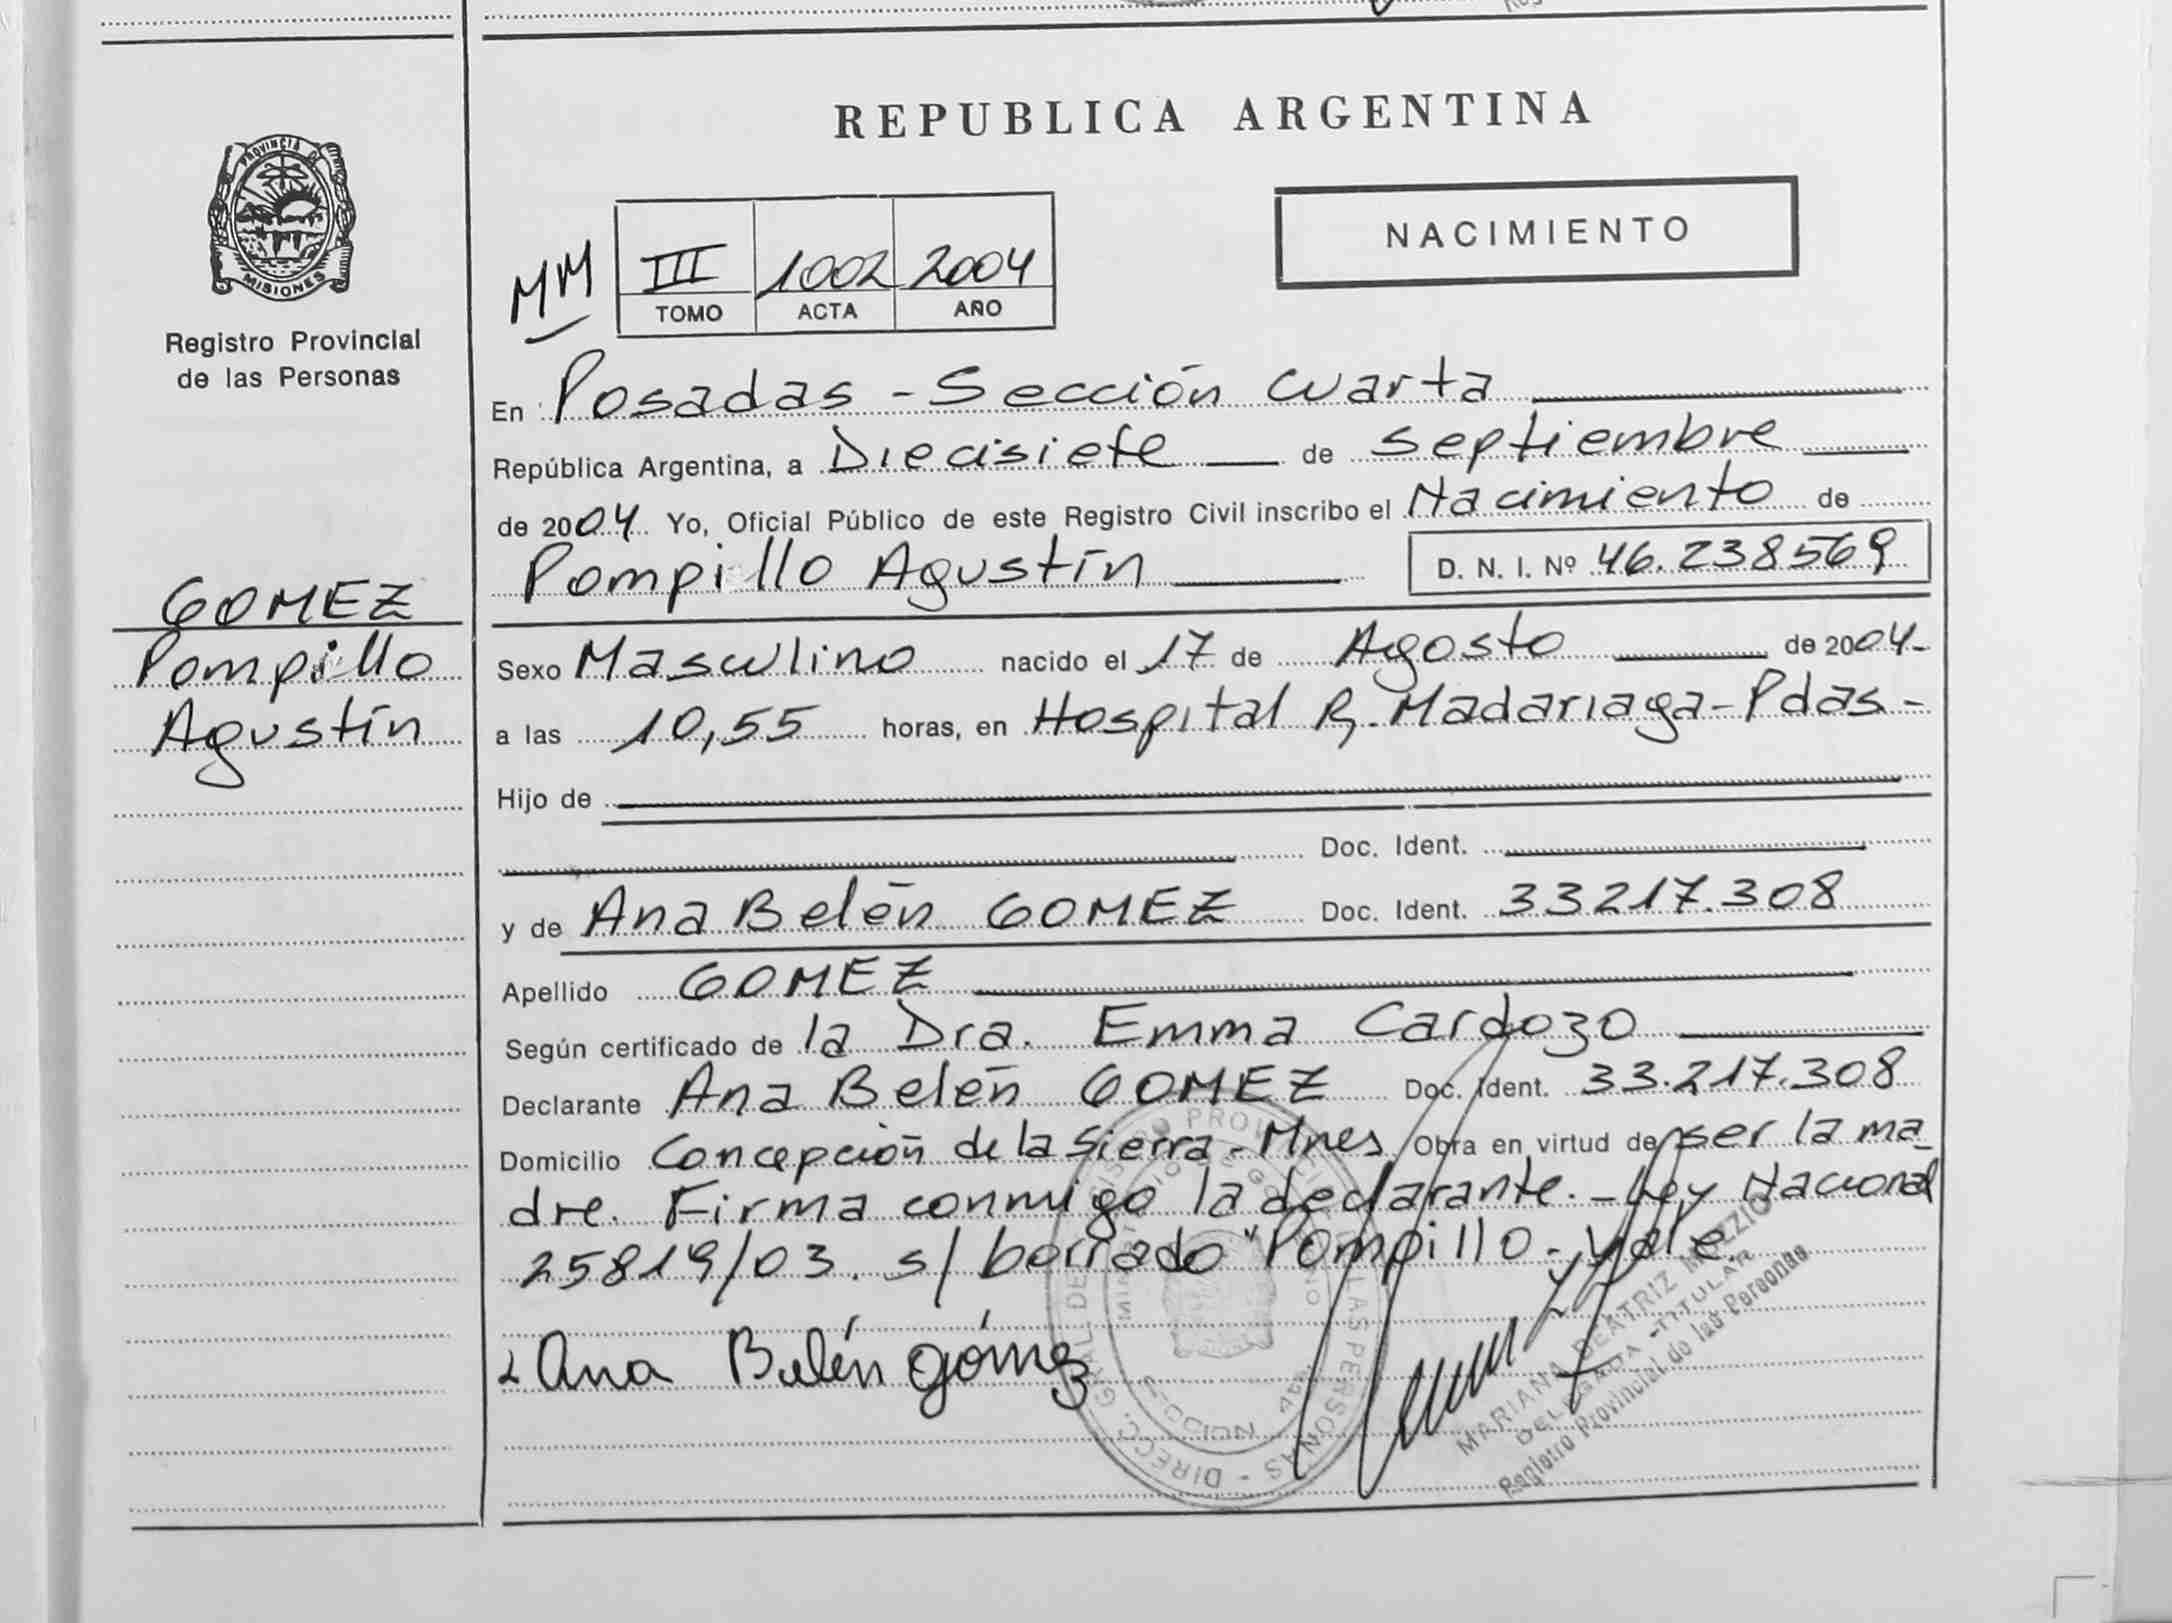 REPUBLICA ARGENTINA
PROVINCIA DE
MISIONES
Registro Provincial
de las Personas
NACIMIENTO
MM III 1002 2004
TOMO ACTA AÑO
En Posadas - Sección Cuarta
República Argentina, a Diecisiete de Septiembre
de 2004 Yo, Oficial Público de este Registro Civil inscribo el Nacimiento de
Pompillo Agustín D. N. I. Nº 46.238569
GOMEZ
Pompillo
Agustín
Sexo Masculino nacido el 17 de Agosto de 2004-
a las 10,55 horas, en Hospital R. Madariaga-Pdas-
Hijo de
Doc. Ident.
y de Ana Belén GOMEZ Doc. Ident. 33217.308
Apellido GOMEZ
Según certificado de la Dra. Emma Cardozo
Declarante Ana Belén GOMEZ Doc. Ident. 33.217.308
Domicilio Concepción de la Sierra - Mnes Obra en virtud de ser la ma_
dre. Firma conmigo la declarante.- Ley Nacional
25819/03. s/ borrado "Pompillo - Vale.
Ana Belén Gómez
MARIANA BEATRIZ
DELEGADA - TITULAR
Registro Provincial de las Personas